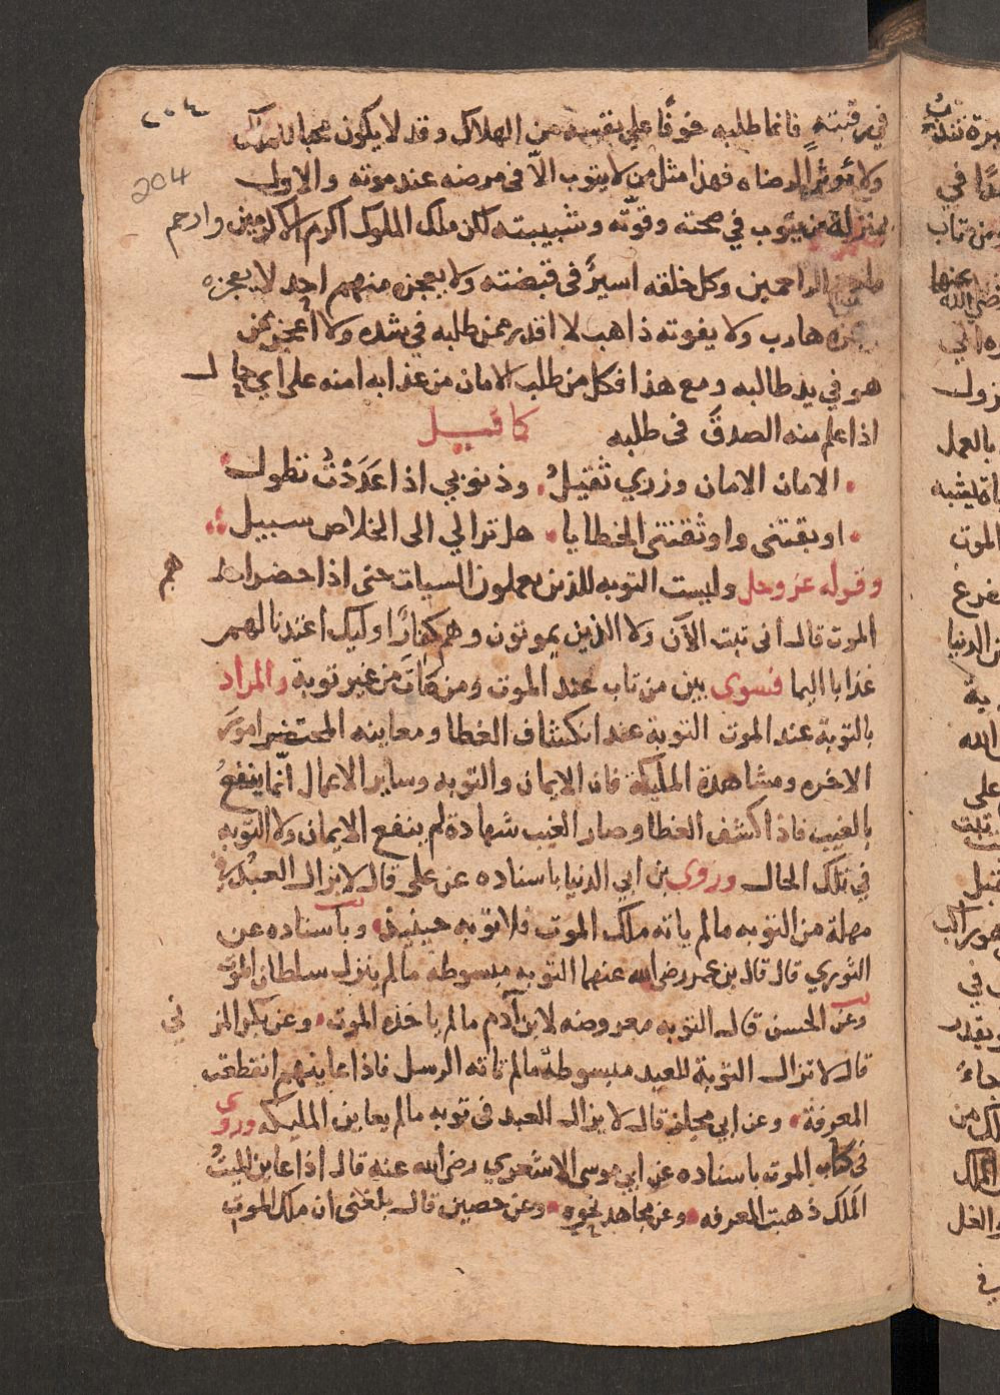 ٢٠٤
204
في رقبته فانما طلبه خوفًا على نفسه من الهلاك وقد لا يكون محبا للملك
ولا مؤثرا لرضاه فهذا مثل من لا يتوب الا في مرضه عند موته والاول
بمنزلة من يتوب في صحته وقوته وشبيبته لكن ملك الملوك اكرم الاكرمين وارحم
الراحمين وكل خلقه اسيرٌ في قبضته ولا يعجزه منهم احد لا يعجزه
هارب ولا يفوته ذاهب لا اقدر ممن طلبه في يده ولا اعجز ممن
هو في يد طالبه ومع هذا فكل من طلب الامان من عذابه امنه على اي حال
اذا علم منه الصدق في طلبه كما قيل
الامان الامان وزري ثقيلُ وذنوبي اذا عَدَدْتُ تطول
اوبقتني واوثقتني الخطايا هل ترا لي الى الخلاص سبيل
وقوله عز وجل وليست التوبه للذين يعملون السيات حتى اذا حضر احدهم
الموت قال انى تبت الآن ولا الذين يموتون وهم كفارًا اوليك اعتدنا لهم
عذابا اليما فسوى بين من تاب عند الموت ومن مات من غير توبة والمراد
بالتوبة عند الموت التوبة عند انكشاف الغطا ومعاينه المحتضر امور
الاخره ومشاهدة المليكة فان الايمان والتوبه وساير الاعمال انما ينفعُ
بالغيب فاذا كشف الغطا وصار الغيب شهادة لم ينفع الايمان ولا التوبه
في تلك الحال وروى بن ابي الدنيا باسناده عن علي قال لا يزال العبد في
مهلة من التوبه مالم ياته ملك الموت فلا توبه حينيذ وباسناده عن
الثوري قال قال بن عمر رضي الله عنهما التوبه مبسوطه مالم ينزل سلطان الموت
وعن الحسن قال التوبه معروضه لابن آدم مالم ياخذه الموت وعن بكر المزني
قال لا تزال التوبة للعبد مبسوطة مالم تاته الرسل فاذا عاينهم انقطعت
المعرفة وعن ابي مجلز قال لا يزال العبد في توبه مالم يعاين المليكه وروى
في كتاب الموت باسناده عن ابي موسى الاشعري رضي الله عنه قال اذا عاين الميتُ
الملك ذهبت المعرفه وعن مجاهد نحوه وعن حصين قال بلغني ان ملك الموت